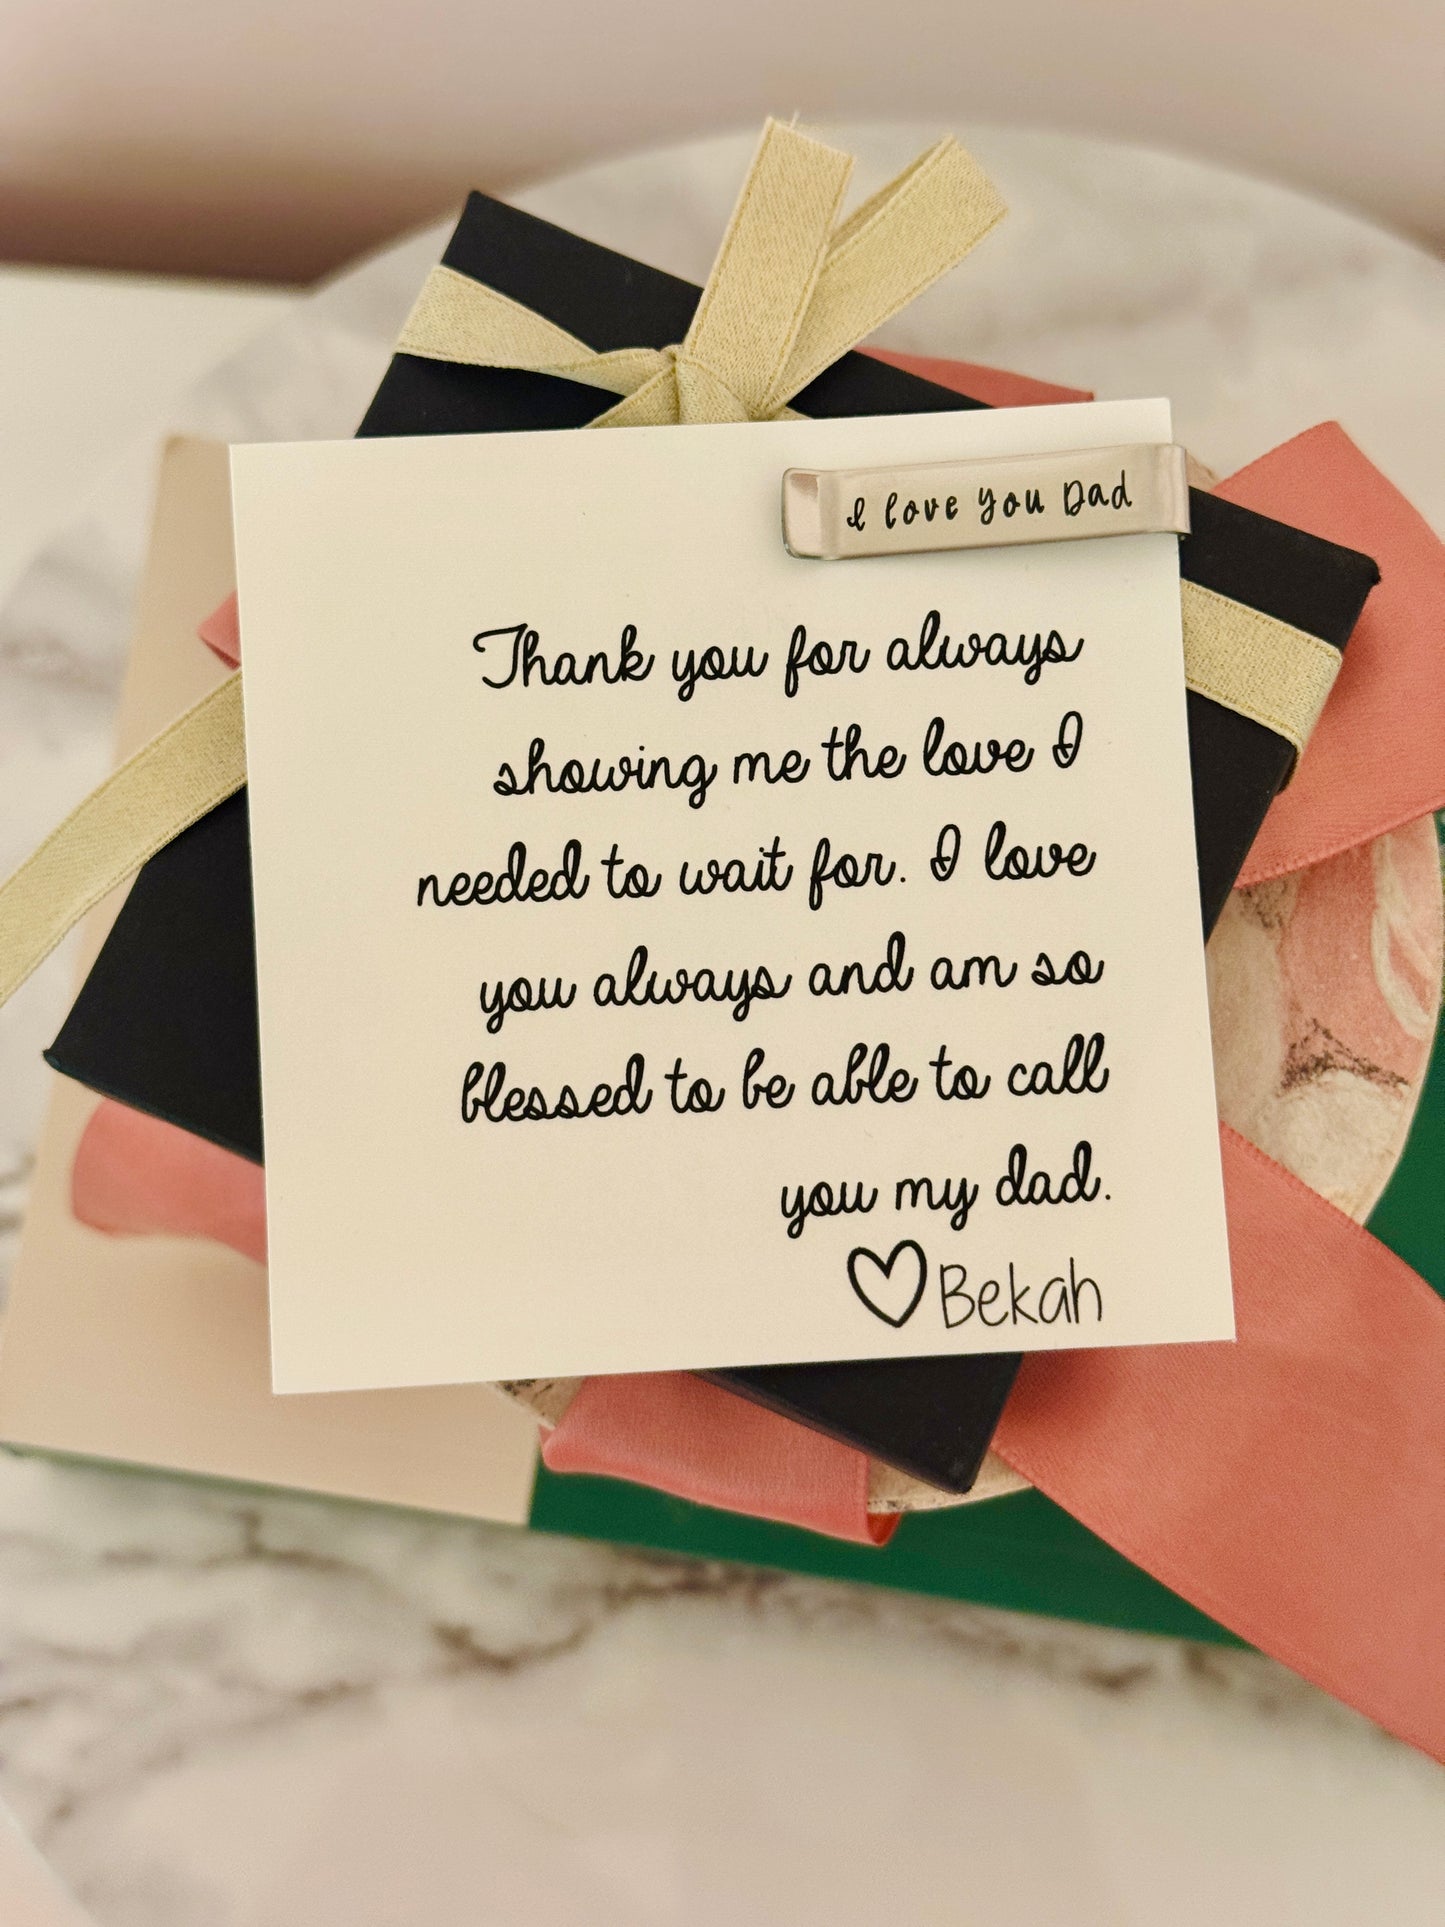 I love you Dad
Thank you for always
showing me the love I
needed to wait for. I love
you always and am so
blessed to be able to call
you my dad.
Bekah